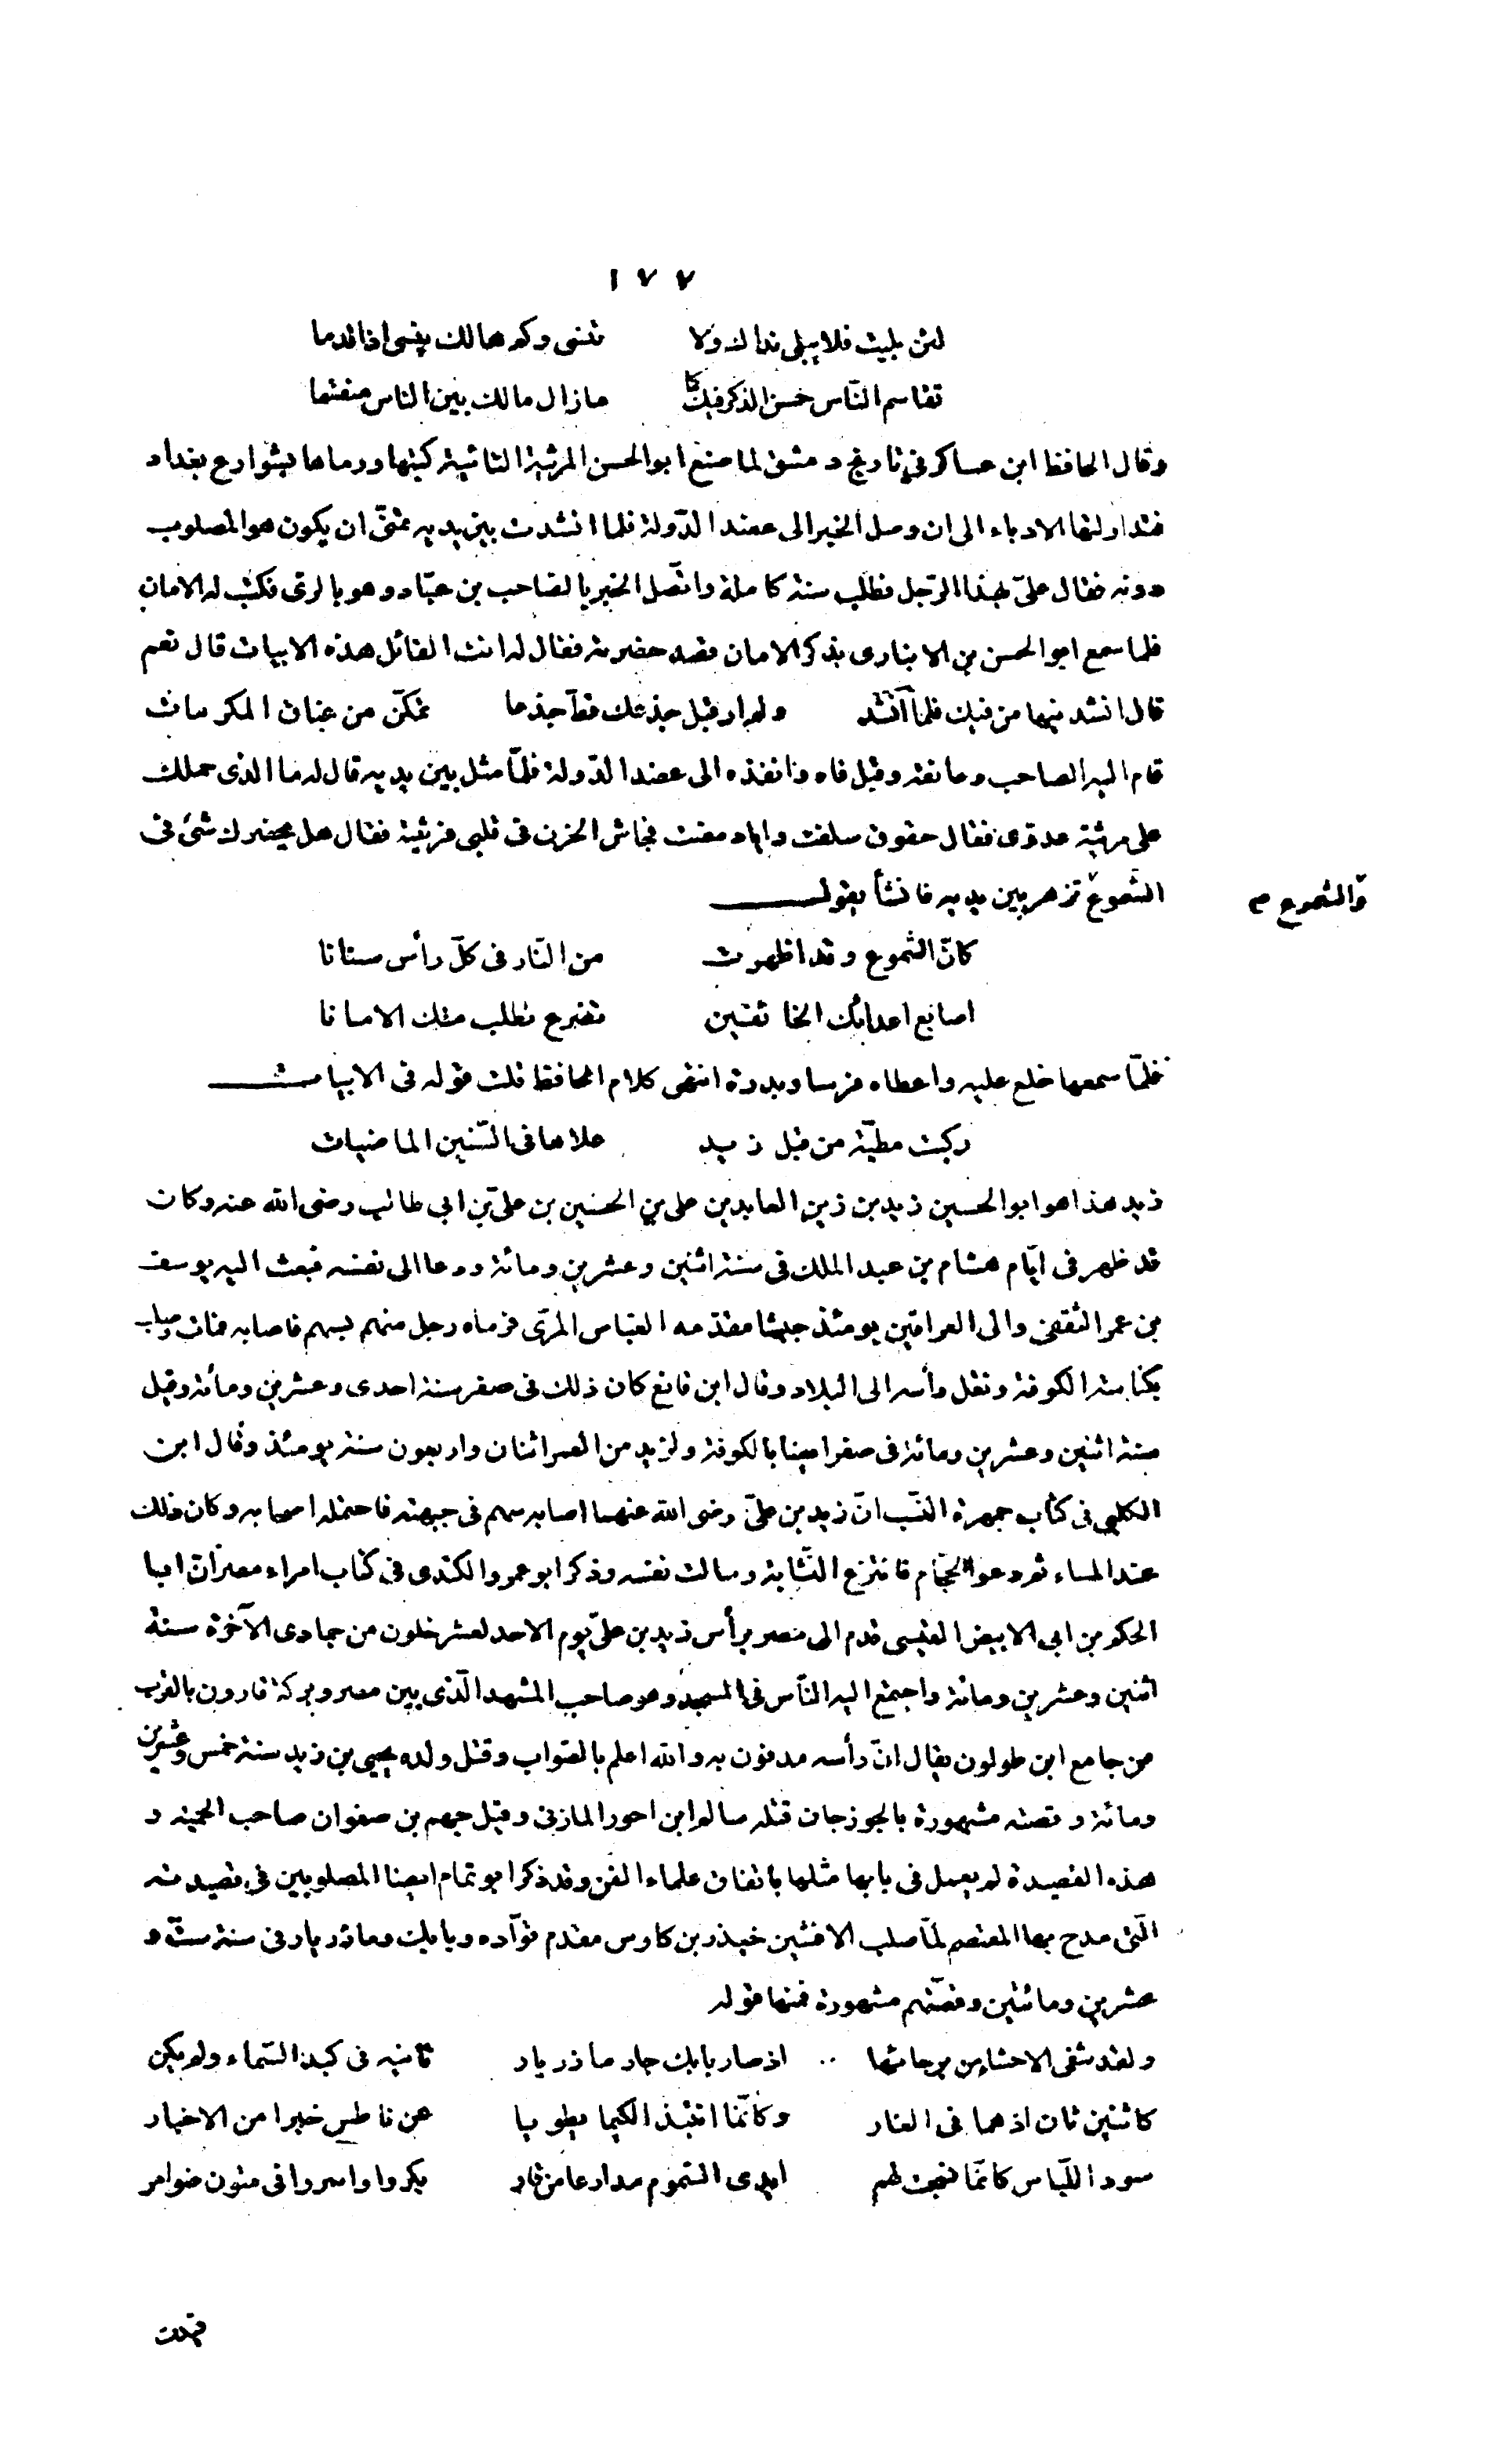 ١٧٧
لئن بليت فلا يبلى نداك ولا تنسى وكم هالك ينسى اذا قدما
تقاسم النّاس حسن الذكر فيك كما مازال مالك بين الناس منقسما
وقال الحافظ ابن عساكر فى تاريخ دمشق لما صنع ابو الحسن المرثية التائية كتبها ورماها بشوارع بغداد
فتداولتها الادباء الى ان وصل الخبر الى عضد الدّولة فلما انشدت بين يديه تمنّى ان يكون هو المصلوب
دونه فقال علىّ بهذا الرّجل فطلب سنة كاملة واتّصل الخبر بالصاحب بن عبّاد وهو بالرى فكتب له الامان
فلما سمع ابو الحسن بن الانبارى بذكر الامان قصد حضرته فقال له انت القائل هذه الابيات قال نعم
قال انشدنيها من فيك فلمّا انشد ولم ار قبل جذعك قطّ جذعا تمكّن من عناق المكرمات
قام اليه الصاحب وعانقه وقبل فاه وانفذه الى عضد الدّولة فلمّا مثل بين يديه قال له ما الذى حملك
على مرثية عدوّى فقال حقوق سلفت واياد مضت فجاش الحزن فى قلبى فرثيته فقال هل يحضرك شئ فى
الشموع تزهر بين يديه فانشأ يقول
والشموع م
كانّ الشموع وقد اظهرت من النّار فى كلّ رأس سنانا
اصابع اعدائك الخائفين تضرع تطلب منك الامانا
فلمّا سمعها خلع عليه واعطاه فرسا وبدرة انتهى كلام الحافظ قلت قوله فى الابيات
ركبت مطيّة من قبل زيد علاها فى السّنين الماضيات
زيد هذا هو ابو الحسين زيد بن زين العابدين على بن الحسين بن علىّ بن ابى طالب رضى الله عنه وكان
قد ظهر فى ايّام هشام بن عبد الملك فى سنة اثنين وعشرين ومائة ودعا الى نفسه فبعث اليه يوسف
بن عمر الثقفى والى العراقين يومئذ جيشا مقدّمه العبّاس المرّى فرماه رجل منهم بسهم فاصابه فمات وصلب
بكناسة الكوفة ونقل رأسه الى البلاد وقال ابن قانع كان ذلك فى صفر سنة احدى وعشرين ومائة وقيل
سنة اثنين وعشرين ومائة فى صفر ايضا بالكوفة ولزيد من العمر اثنان واربعون سنة يومئذ وقال ابن
الكلبى فى كتاب جمهرة النّسب انّ زيد بن علىّ رضى الله عنهما اصابه سهم فى جبهته فاحتمله اصحابه وكان ذلك
عند المساء ثم دعوا الحجّام فانتزع النّشابة وسالت نفسه وذكر ابو عمرو الكندى فى كتاب امراء مصر انّ ابا
الحكم بن ابى الابيض القيسى قدم الى مصر برأس زيد بن علىّ يوم الاحد لعشر خلون من جمادى الآخرة سنة
اثنين وعشرين ومائة واجتمع اليه النّاس فى المسجد وهو صاحب المشهد الّذى بين مصر وبركة قارون بالقرب
من جامع ابن طولون يقال انّ رأسه مدفون به والله اعلم بالصّواب وقتل ولده يحيى بن زيد سنة خمس وعشرين
ومائة وقصته مشهورة بالجوزجان قتله سالم ابن احور المازنى وقيل جهم بن صفوان صاحب الجهمية و
هذه القصيدة لم يعمل فى بابها مثلها باتفاق علماء الفن وقد ذكر ابو تمام ايضا المصلوبين فى قصيدته
الّتى مدح بها المعتصم لمّا صلب الافشين خيذر بن كاوس مقدم قوّاده وبابك ومازريار فى سنة ستّ و
عشرين ومائتين وقصّتهم مشهورة فمنها قوله
ولقد شفى الاحشاء من برحائها اذ صار بابك جار مازريار ثانيه فى كبد السّماء ولم يكن
كاثنين ثان اذ هما فى الغار وكانّما انتبذا لكيما يطويا عن ناطس خبرا من الاخبار
سود اللّباس كانّما نسجت لهم ايدى السّموم مدارعا من قار بكروا واسروا فى متون ضوامر